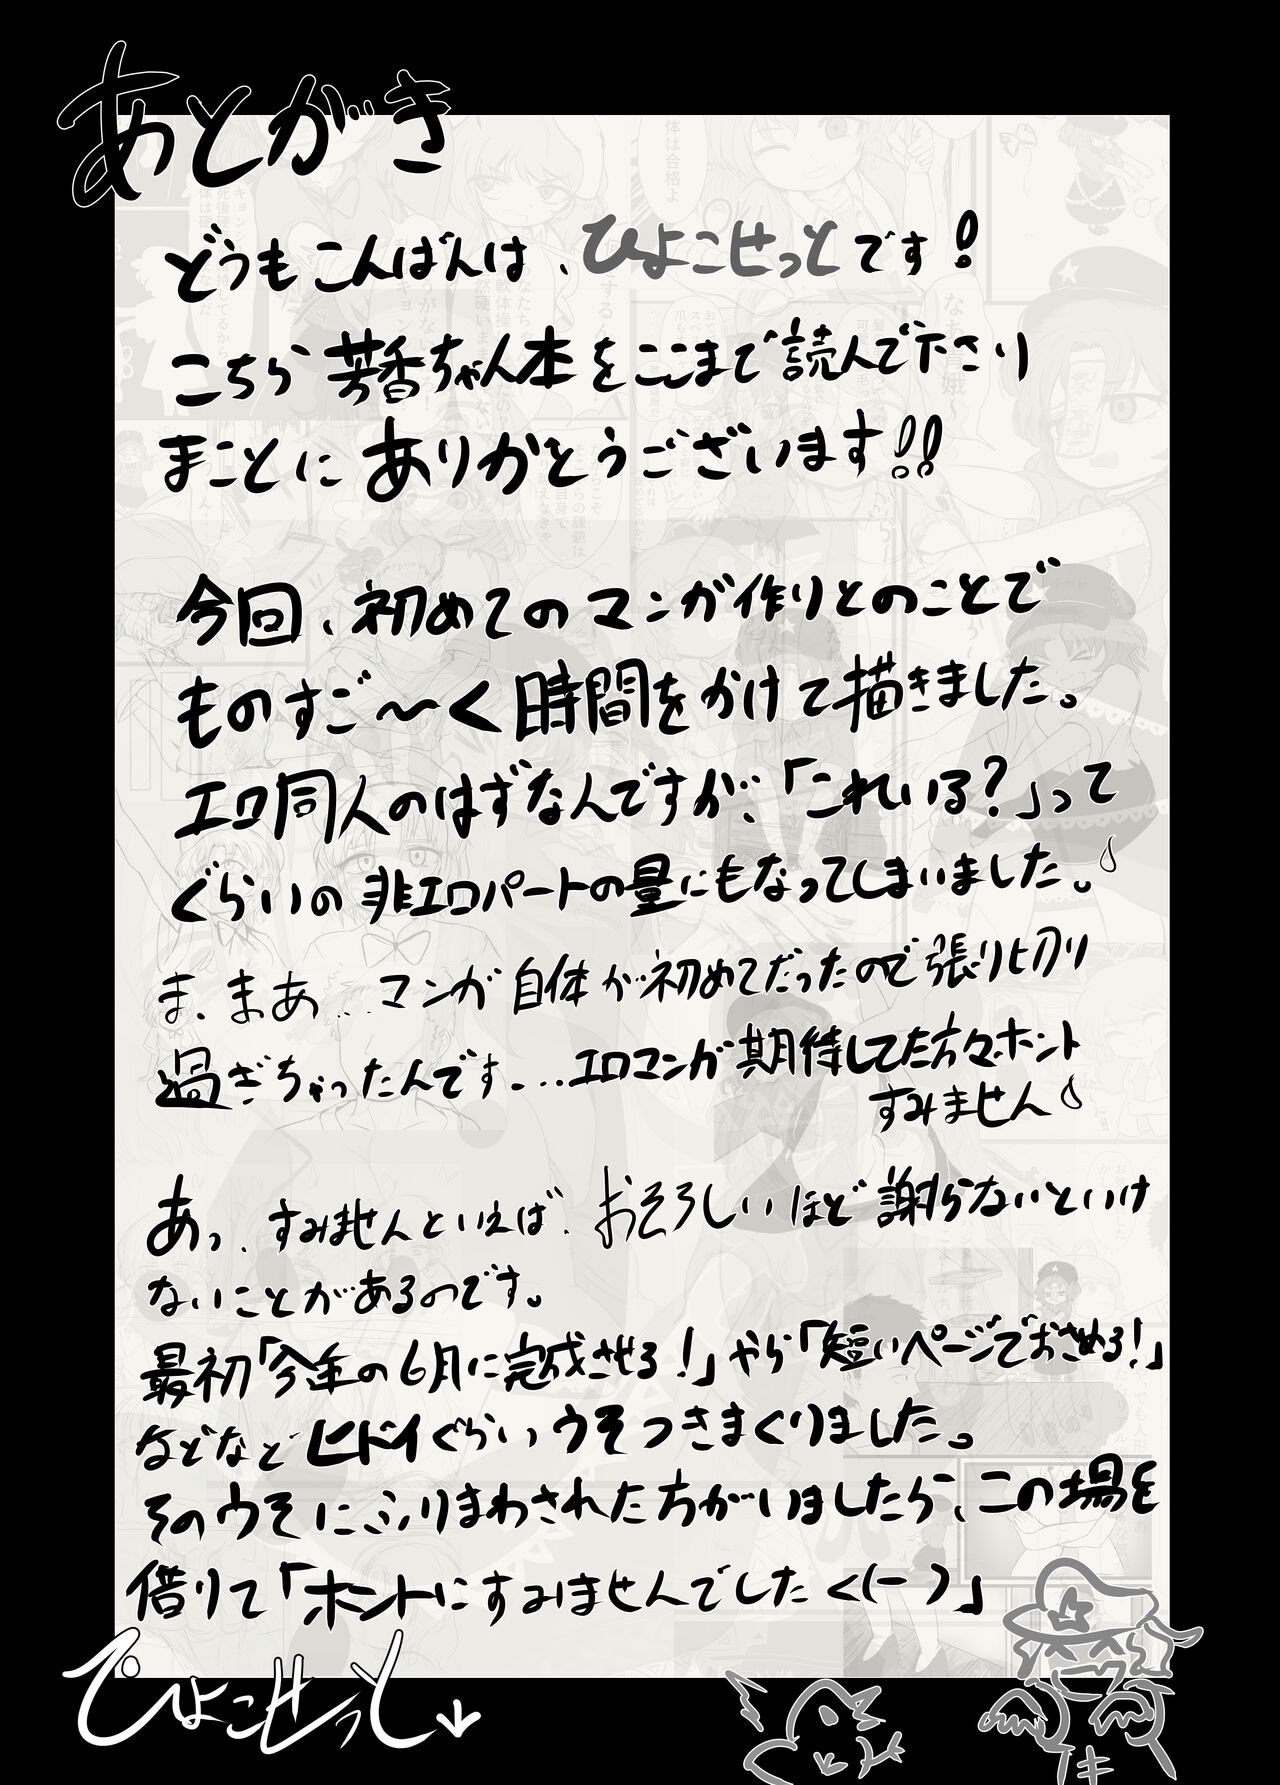 あとがき
どうもこんばんは、ひよこせっとです！
こちら芳香ちゃん本をここまで読んで下さり
まことにありがとうございます!!
今回、初めてのマンガ作りとのことで
ものすご～く時間をかけて描きました。
エロ同人のはずなんですが、「これいる？」って
ぐらいの非エロパートの量にもなってしまいました。
ま、まあ...マンガ自体が初めてだったので張り切り
過ぎちゃったんです...エロマンガ期待してた方々ホント
すみません
あっ、すみませんといえば、おそろしいほど謝らないといけ
ないことがあるのです。
最初「今年の6月に完成させる！」やら「短いページでおさめる！」
などなどヒドイぐらいウソつきまくりました。
そのウソにふりまわされた方がいましたら、この場を
借りて「ホントにすみませんでした<(ー )」
ひよこせっと↓